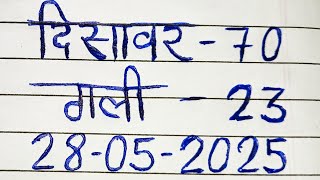 दिसावर - 70
गली - 23
28-05-2025